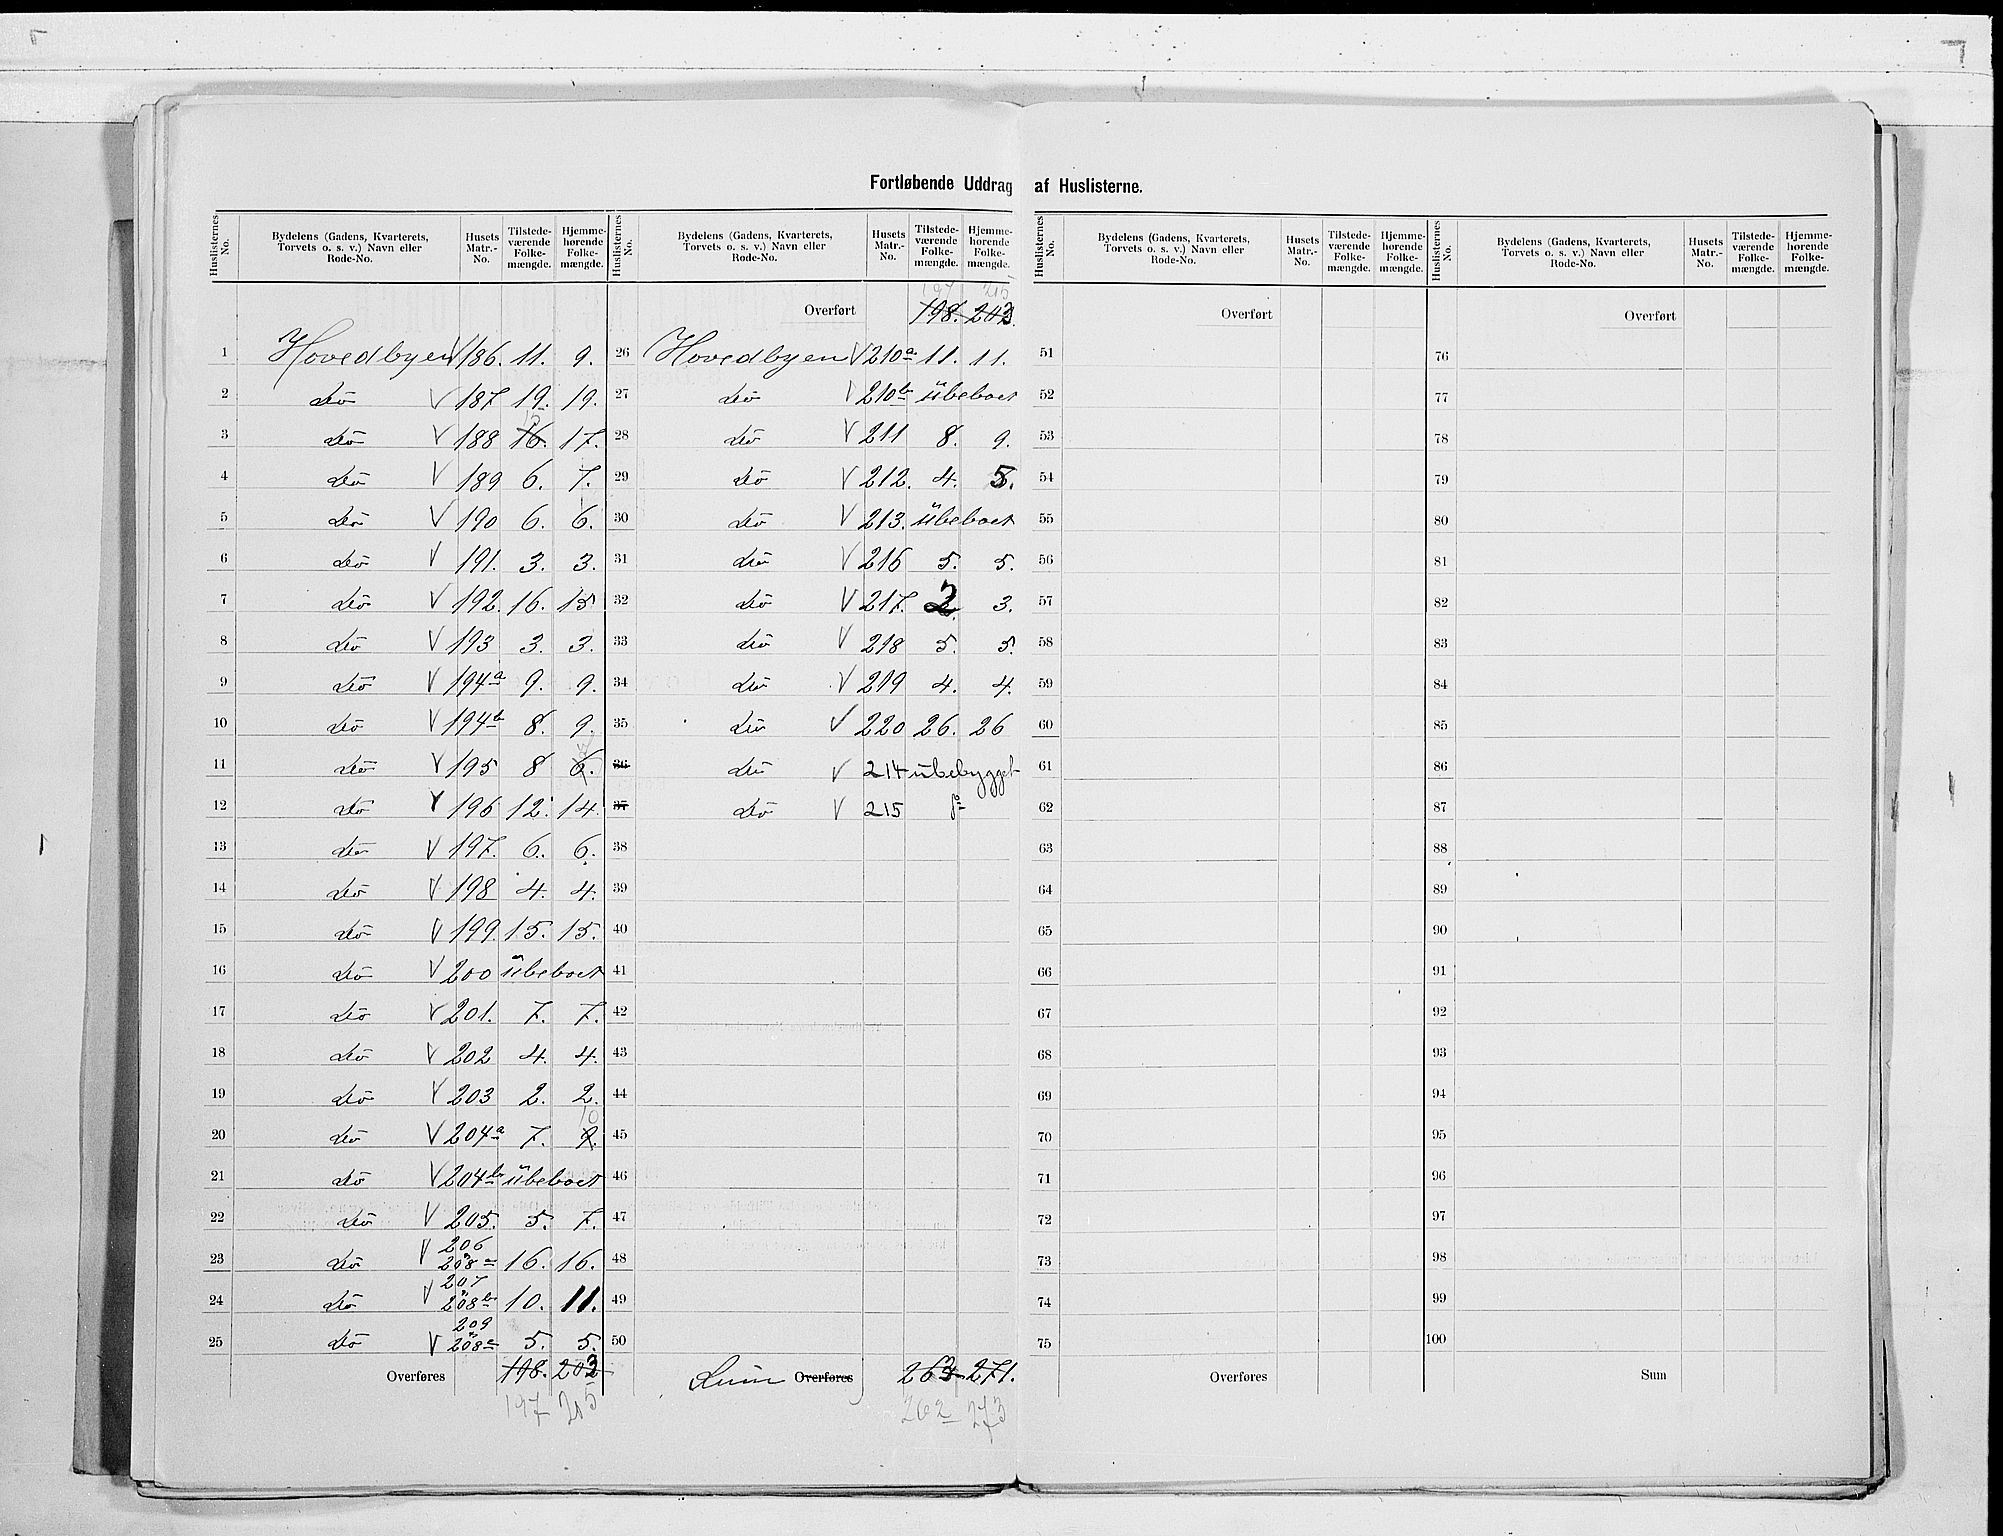 Fortløbende Uddrag af Huslisterne.
Huslisternes No. | Bydelens (Gadens, Kvarterets, Torvets o. s. v.) Navn eller Rode-No. | Husets Matr.-No. | Tilstede-værende Folke-mængde. | Hjemme-hørende Folke-mængde.
1 Hovedbyen V 186. 11. 9.
2 do V 187 19. 19.
3 do V 188 16. 17.
4 do V 189 6. 7.
5 do V 190 6. 6.
6 do V 191. 3. 3.
7 do V 192. 16. 15
8 do V 193 3. 3.
9 do V 194a 9. 9.
10 do V 194b 8. 9.
11 do V 195 8 6.
12 do V 196 12. 14.
13 do V 197. 6. 6.
14 do V 198 4. 4.
15 do V 199. 15. 15.
16 do V 200 übeboet
17 do V 201. 7. 7.
18 do V 202 4. 4.
19 do V 203 2. 2.
20 do V 204a 7. 9. 10
21 do V 204b übeboet
22 do V 205. 5. 7.
23 do V 206 & 208a 16. 16.
24 do V 207 & 208b 10. 11.
25 do V 209 & 208c 5. 5.
Overføres 198. 203
197 205
Huslisternes No. | Bydelens (Gadens, Kvarterets, Torvets o. s. v.) Navn eller Rode-No. | Husets Matr.-No. | Tilstede-værende Folke-mængde. | Hjemme-hørende Folke-mængde.
197 205
Overført 198. 203.
26 Hovedbyen V 210a 11. 11.
27 do V 210b übeboet
28 do V 211 8. 9.
29 do V 212. 4. 5.
30 do V 213. übeboet
31 do V 216 5. 5.
32 do V 217. 2 3.
33 do V 218 5. 5.
34 do V 219 4. 4.
35 do V 220 26. 26
36 do V 214 übebygget
37 do V 215 do
38
39
40
41
42
43
44
45
46
47
48
49
50
Sum Overføres 263 271.
262 273
Huslisternes No. | Bydelens (Gadens, Kvarterets, Torvets o. s. v.) Navn eller Rode-No. | Husets Matr.-No. | Tilstede-værende Folke-mængde. | Hjemme-hørende Folke-mængde.
Overført
51
52
53
54
55
56
57
58
59
60
61
62
63
64
65
66
67
68
69
70
71
72
73
74
75
Overføres
Huslisternes No. | Bydelens (Gadens, Kvarterets, Torvets o. s. v.) Navn eller Rode-No. | Husets Matr.-No. | Tilstede-værende Folke-mængde. | Hjemme-hørende Folke-mængde.
Overført
76
77
78
79
80
81
82
83
84
85
86
87
88
89
90
91
92
93
94
95
96
97
98
99
100
Sum